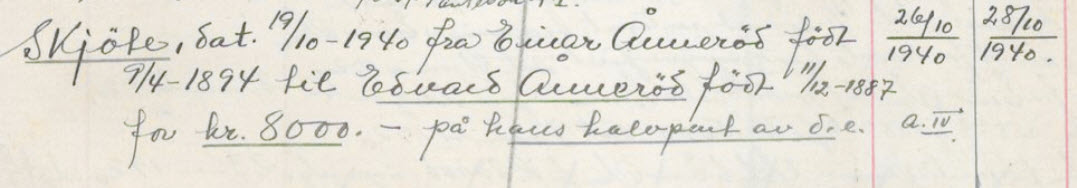 Skjöte, dat. 19/10-1940 fra Einar Ånneröd födt 26/10 1940 28/10 1940.
9/4-1894 til Edvard Ånneröd födt 11/12-1887
for kr. 8000.- på hans halvpart av d.e. a.IV